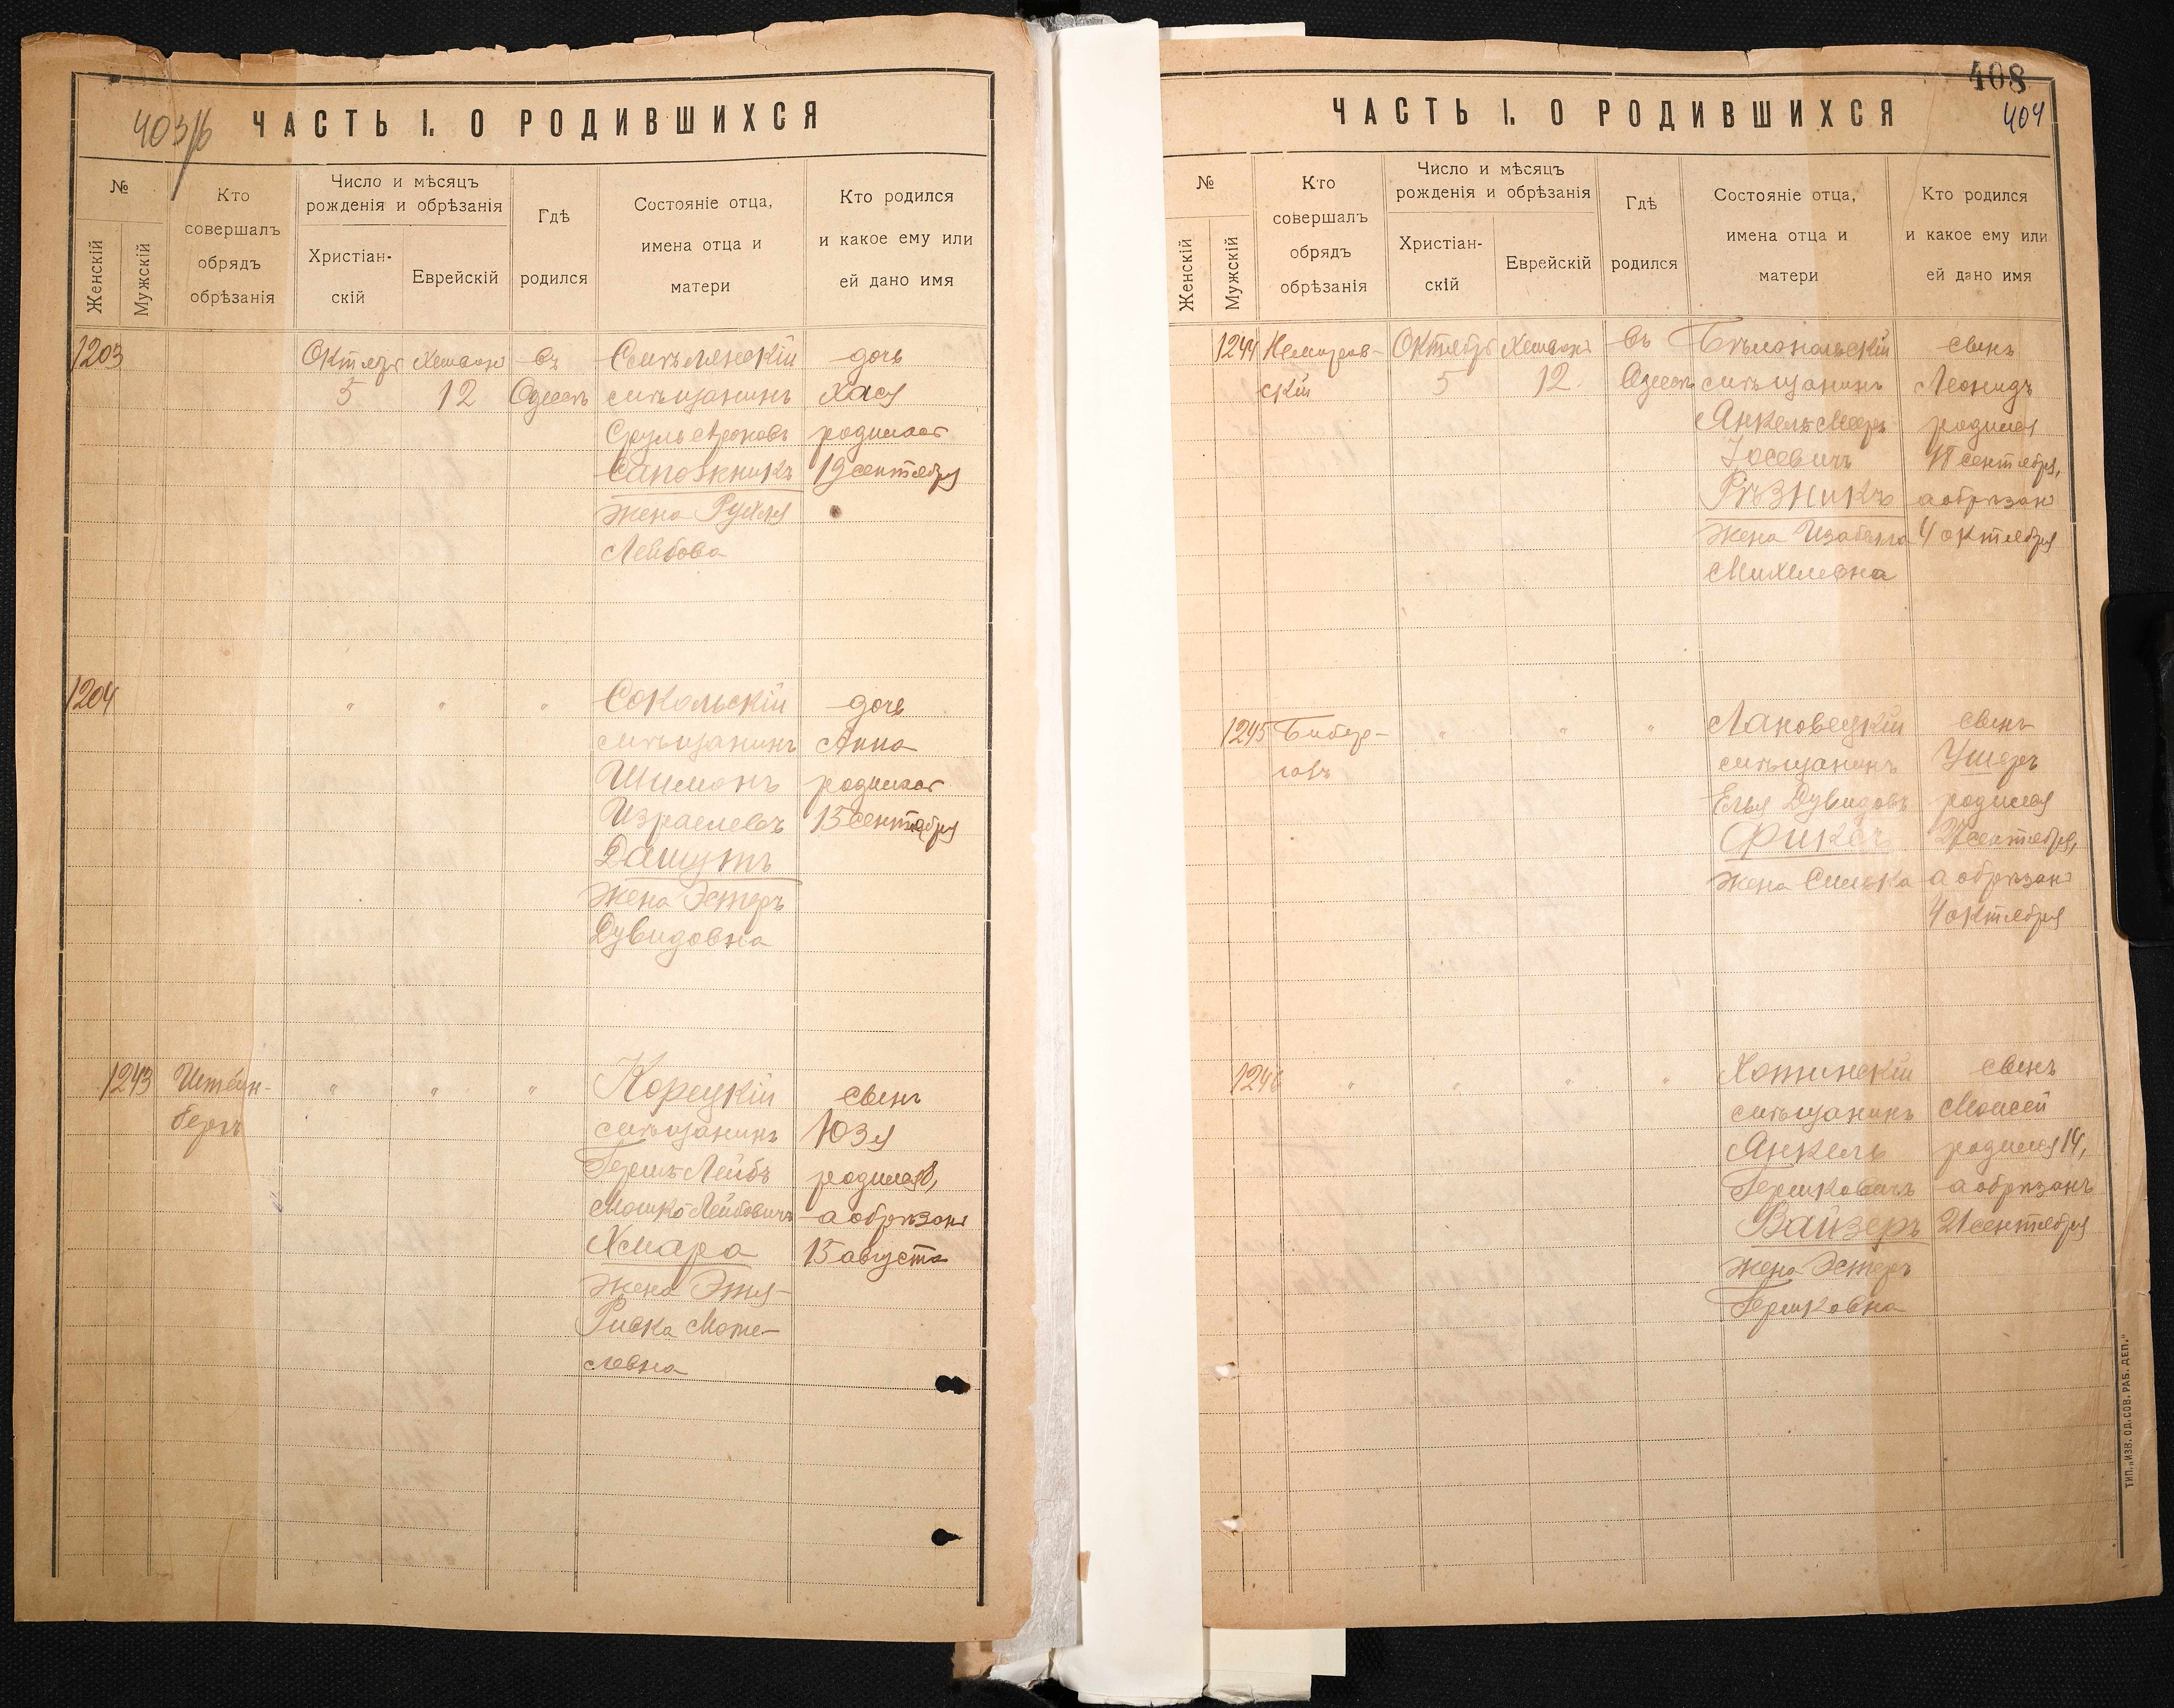 403/б
ЧАСТЬ I. О РОДИВШИХСЯ
№
Женскій
Мужскій
Кто
совершалъ
обрядъ
обрѣзанія
Число и мѣсяцъ
рожденія и обрѣзанія
Христіан-
скій
Еврейскій
Гдѣ
родился
Состояніе отца,
имена отца и
матери
Кто родился
и какое ему или
ей дано имя
1203
Октября
5
Хешвонъ
12
въ
Одессѣ
мѣщанинъ
Сруль Ароновъ
Сапожникъ
жена Рухля
Лейбова
дочь
Хася
родилась
19 сентября
1204
"
"
"
Сокольскій
мѣщанинъ
Шимонъ
Израилевъ
Дашутъ
жена Эстеръ
Дувидовна
дочь
Анна
родилась
15 сентября
1243
Штейн-
бергъ
"
"
"
Корецкій
мѣщанинъ
Гершъ Лейбъ
Мошко Лейбовичъ
Хмара
жена Этя-
Ривка Моте-
левна
сынъ
Юзя
родился 8,
а обрѣзанъ
15 августа
408
404
ЧАСТЬ I. О РОДИВШИХСЯ
№
Женскій
Мужскій
Кто
совершалъ
обрядъ
обрѣзанія
Число и мѣсяцъ
рожденія и обрѣзанія
Христіан-
скій
Еврейскій
Гдѣ
родился
Состояніе отца,
имена отца и
матери
Кто родился
и какое ему или
ей дано имя
1244
Немиров-
скій
Октября
5
Хешвонъ
12
въ
Одессѣ
Бѣлопольскій
мѣщанинъ
Янкель Мееръ
Іосевичъ
Рѣзникъ
жена Изабелла
Михелевна
сынъ
Леонидъ
родился
сентября,
а обрѣзанъ
4 октября
1245
Бибер-
галъ
"
"
"
Лановецкій
мѣщанинъ
Елья Дувидовъ
Фиксъ
жена Симка
сынъ
Ушеръ
родился
27 сентября,
а обрѣзанъ
4 октября
1246
"
"
"
"
Хотинскій
мѣщанинъ
Янкель
Гершковичъ
Вайзеръ
жена Эстеръ
Гершковна
сынъ
Моисей
родился 14,
а обрѣзанъ
21 сентября
ТИП. „ИЗВ. ОД. СОВ. РАБ. ДЕП."